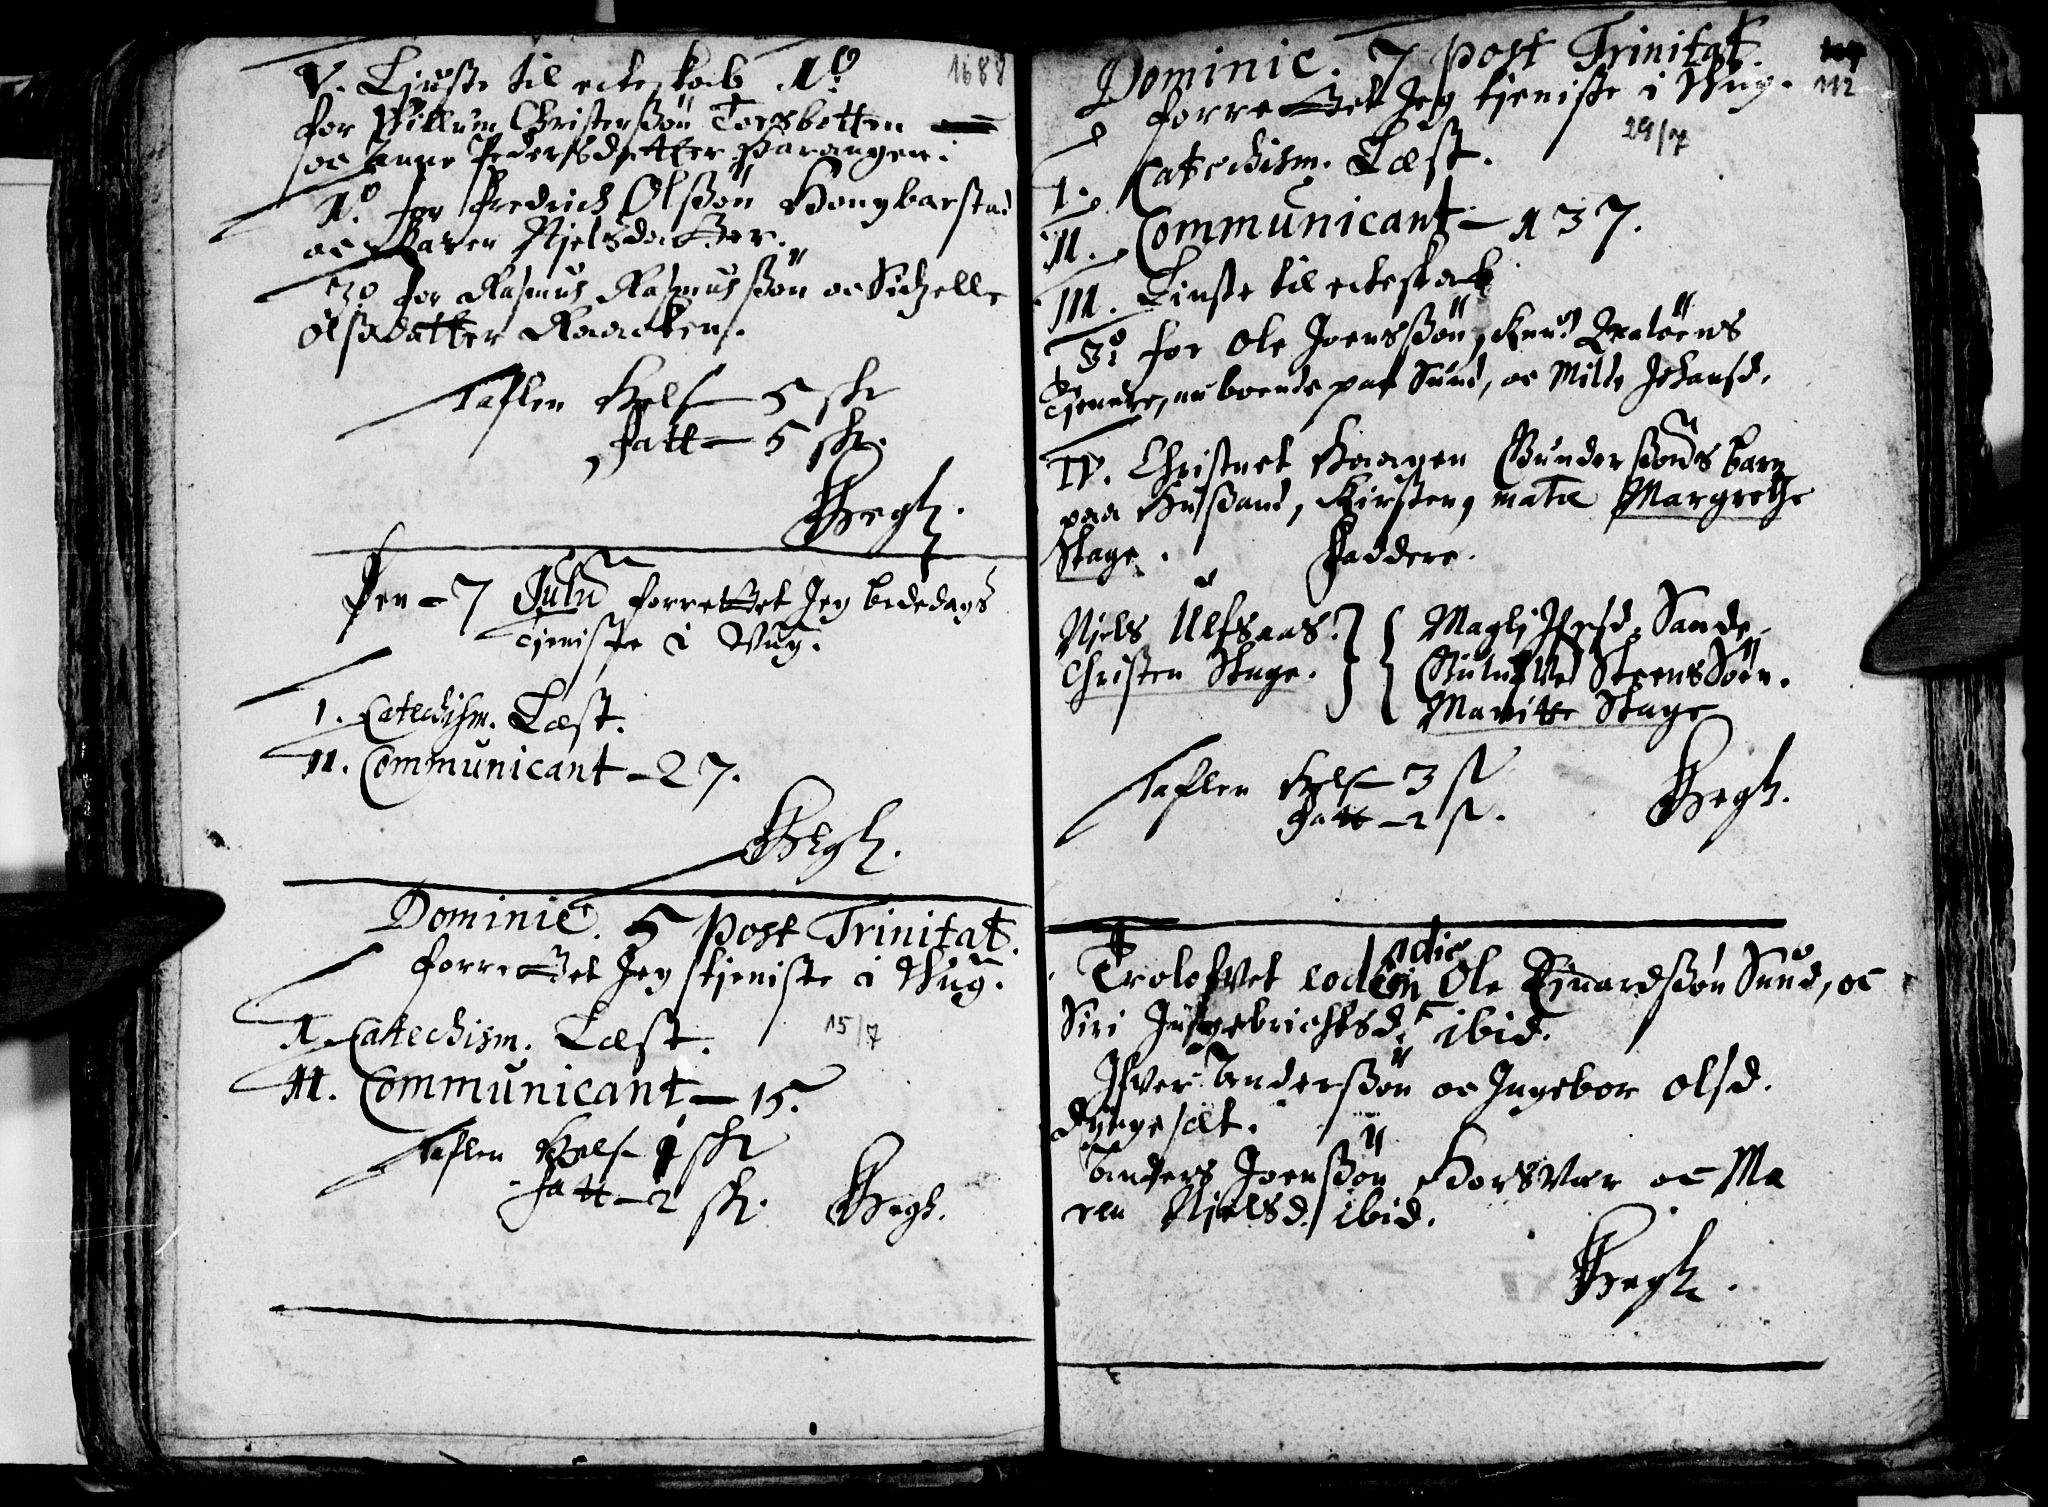 1688
V. Liuste til ecteskab 1o
for Willum Christenssön Torsbotten
oc Anne Pedersdatter Parangen:
1o. for Fredrich Olssön Hongbarstad
oc Karen Njelsdatter.
3o for Rasmus Rasmussön oc Sidzelle
Olssdatter Raacken.
Taflen Hels - 5 sk
Fatt - 5 sk.
Hegh.
Den - 7 Julij forrettet Jeg bededags
tjeniste i Wug.
I. Catechism. Læst.
II. Communicant - 27.
Hegh.
Dominic. 5 post Trinitat.
forrettet Jeg tjeniste i Wug.
I. Catechism. Læst. 15/7
II. Communicant - 15.
Taflen Hels 1 sk
Fatt - 2 sk. Hegh.
112
Dominic. 7 post Trinitat.
forrettet Jeg tjeniste i Wug.
29/7
I. Catechism. Læst.
II. Communicant - 137.
III. Liuste til ecteskab
3o. for Ole Joenssön, Knud
tjenere, nu boende paa Sund, oc Mille Johansd.
IV. Christnet Haagen Gunderssöns barn
paa Hussand, Kirsten, mat. Margrethe
Skage. Faddere.
Njels Ulfsaas.
Christen Skage.
Magli Ifvrsd. Sande
SteensSön.
Maritte Skage
Taflen Hels - 3 s
Fatt - 2 s. Hegh.
Trolofvet eodem die Ole Ejnardssön Sund, oc
Siri Ingebrichtsd. ibid.
Ifver Anderssön oc Ingebor Olsd.
Dyngesæt.
Anders Joenssön Horsvær oc Ma
ren Njelsd. ibid.
Hegh.